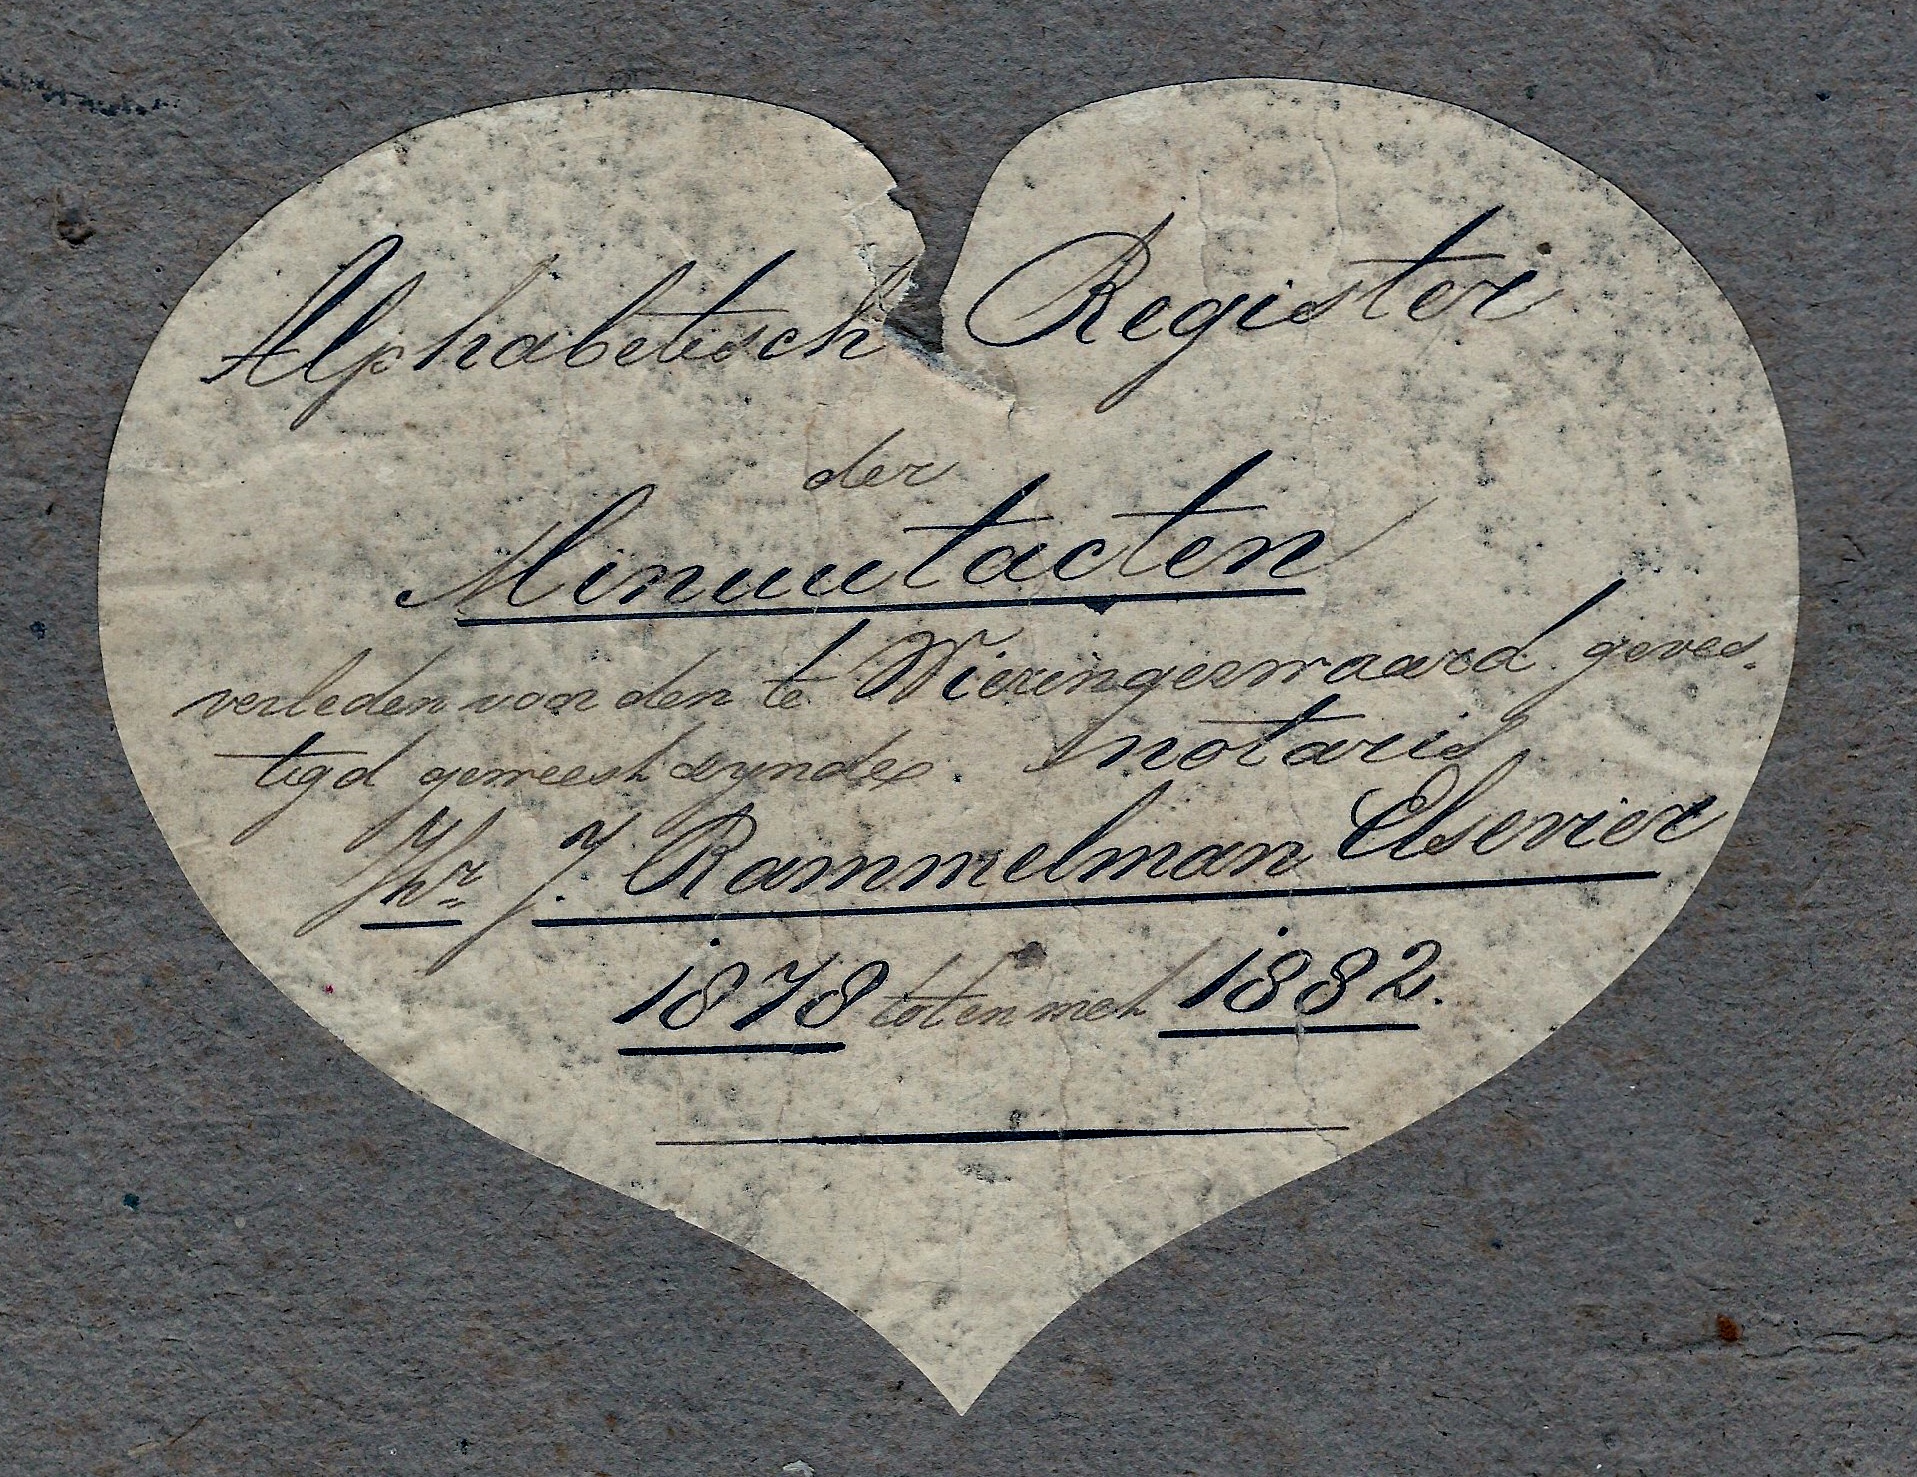 Alphabetisch Register
der
Minuutacten
verleden voor den te Wieringerwaard geves-
tigd geweest zynde. notaris
Jhr J. J. Rammelman Elsevier
1878 tot en met 1882.